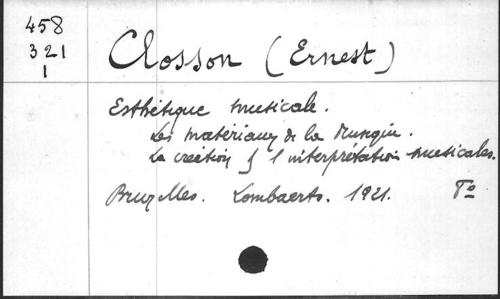 458
321
1
Closson (Ernest)
Esthétique musicale.
Les matériaux de la Musique.
La création & l'interprétation musicales.
Bruxelles. Lombaerts. 1921. Tº